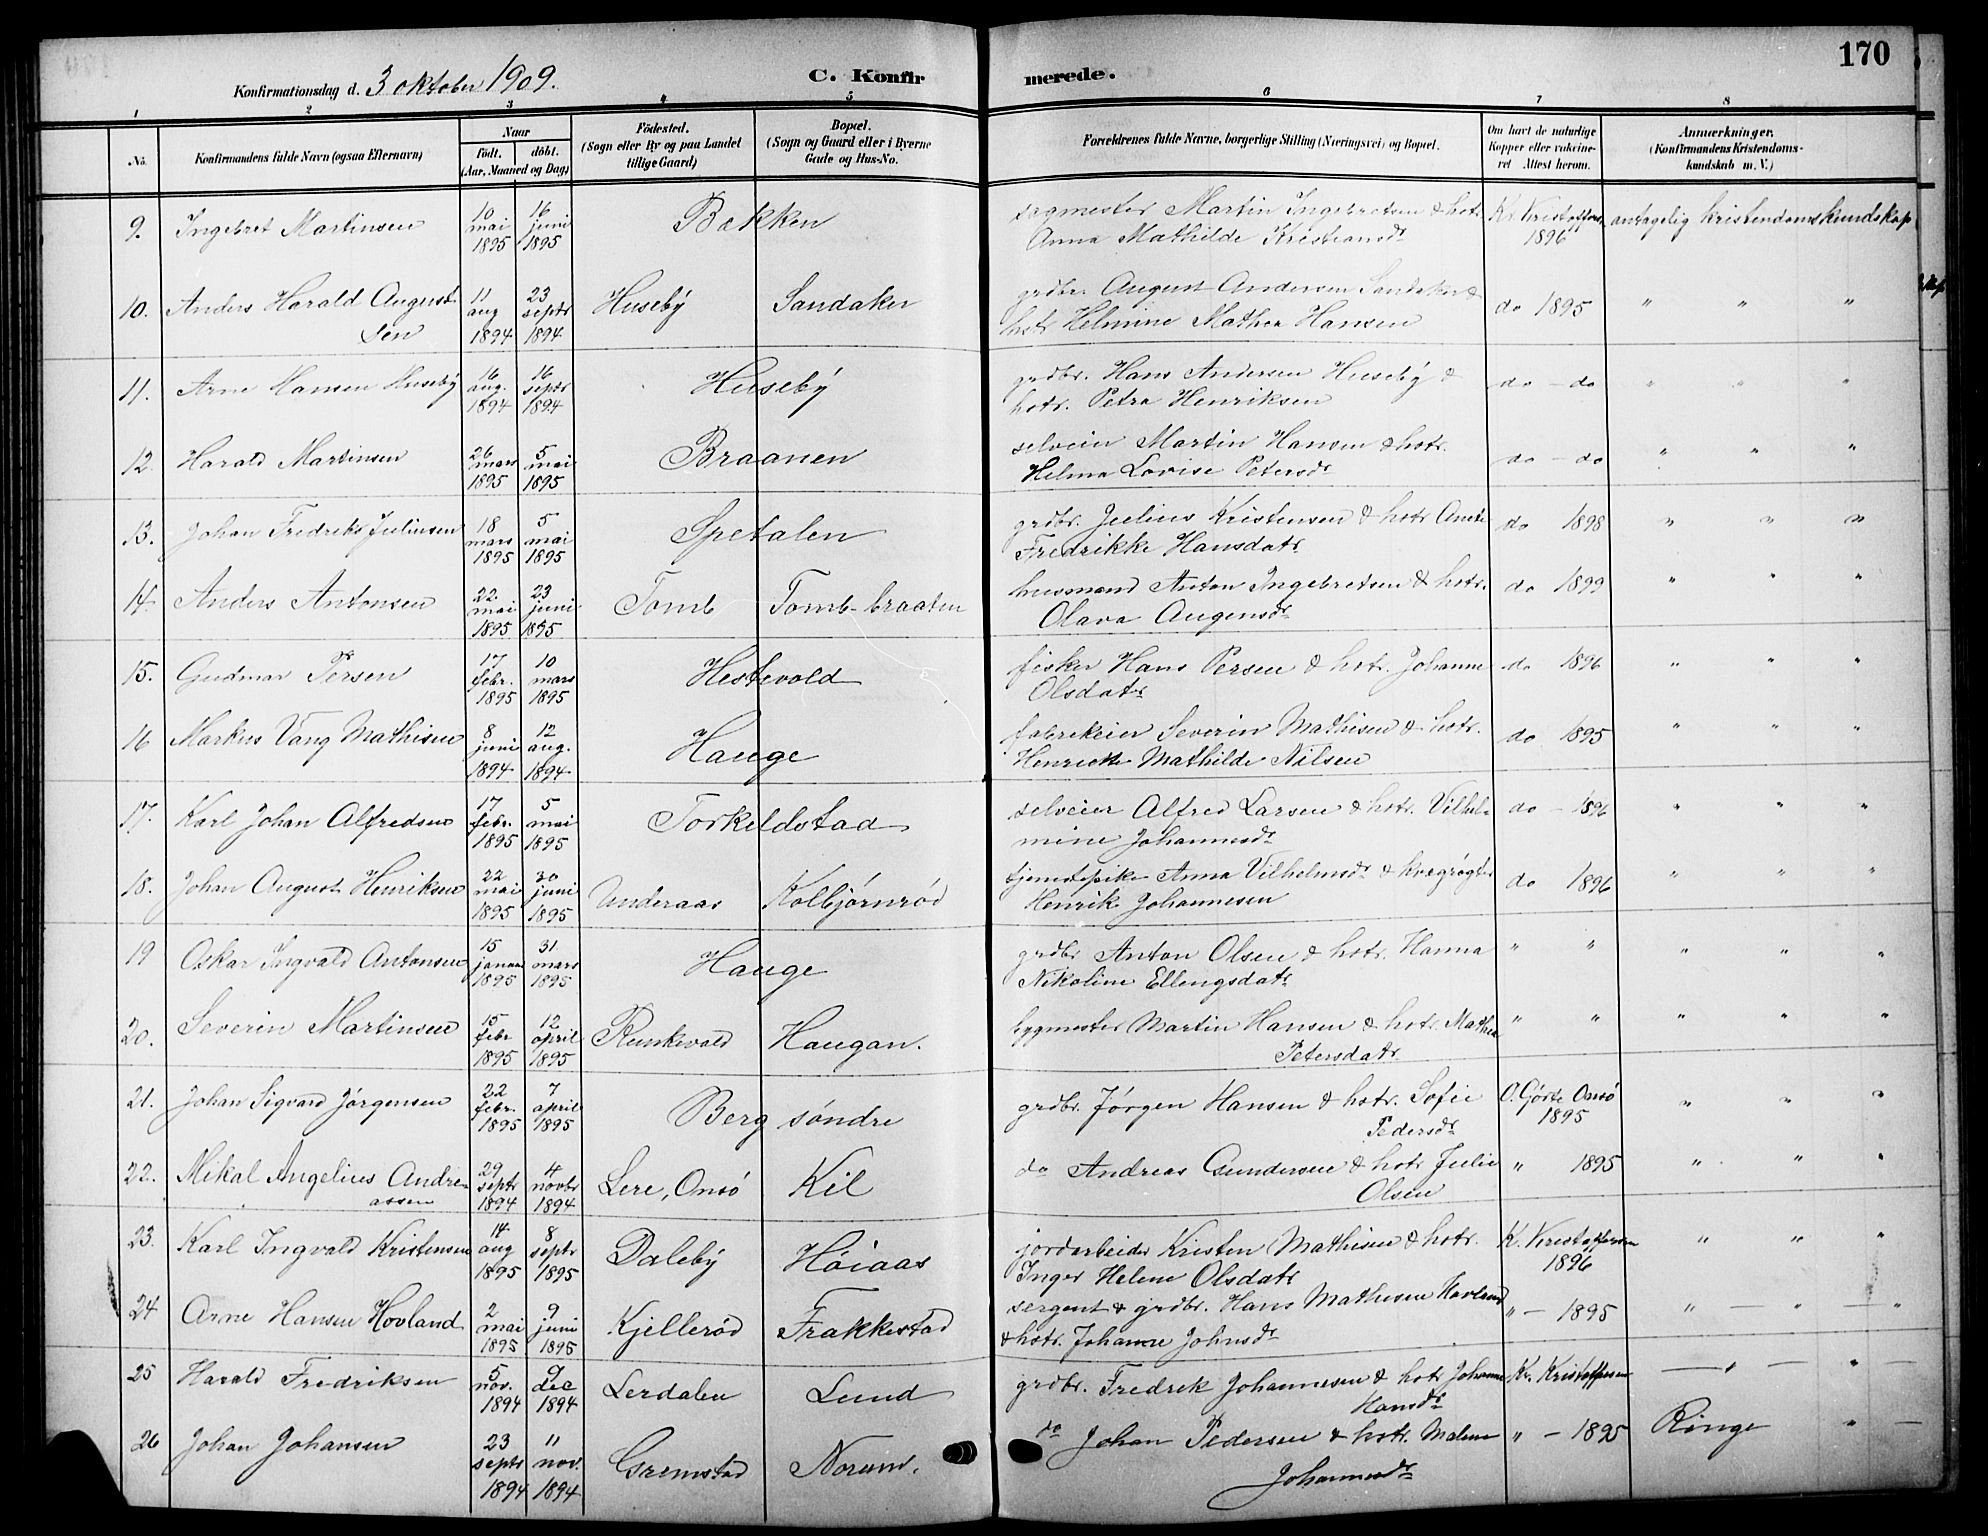 170
Konfirmationsdag d. 3 oktober 1909.
C. Konfirmerede.
1 2 3 4 5 6 7 8
No.
Konfirmandens fulde Navn (ogsaa Efternavn)
Naar
Født. døbt.
(Aar, Maaned og Dag)
Fødested.
(Sogn eller By og paa Landet
tillige Gaard)
Bopæl.
(Sogn og Gaard eller i Byerne
Gade og Hus-No.
Forældrenes fulde Navne, borgerlige Stilling (Næringsvei) og Bopæl.
Om havt de naturlige
Kopper eller vakcine-
ret Attest herom.
Anmærkninger.
(Konfirmandens Kristendoms-
kundskab m. V.)
9. Ingebret Martinsen 10 mai 1895 16 juni 1895 Bakken sagmester Martin Ingebretsen & hstr.
Anna Mathilde Kristiansdr Kr. Kristoffersen 1896 antagelig kristendomskundskap
10. Anders Harald August-
sen 11 aug 1894 23 septr 1894 Huseby Sandaker grdbr. August Andersen Sandaker &
hstr Helmine Mathea Hansen do 1895 " " "
11. Arne Hansen Huseby 16 aug. 1894 16 septr 1894 Huseby grdbr. Hans Andersen Huseby &
hstr. Petra Henriksen do - do " " "
12. Harald Martinsen 26 mars 1895 5 mai 1895 Braanen selveier Martin Hansen & hstr.
Helma Lovise Petersdr do - do " " "
13. Johan Fredrik Juliusen 18 mars 1895 5 mai 1895 Spetalen grdbr. Julius Kristensen & hstr
Fredrikke Hansdatr do 1898 " " "
14. Anders Antonsen 22 mai 1895 23 juni 1895 Tomb Tomb-braaten husmand Anton Ingebretsen & hstr.
Olava Augensdr do 1899 " " "
15. Gudmar Persen 17 febr. 1895 10 mars 1895 Hestevold fisker Hans Persen & hstr. Johanne
Olsdatr do 1896 " " "
16 Markus Vang Mathisen 8 juni 1894 12 aug. 1894 Hauge fabrikeier Severin Mathisen & hstr.
Henriette Mathilde Nilsen do 1895 " " "
17. Karl Johan Alfredsen 17 febr. 1895 5 mai 1895 Torkildstad selveier Alfred Larsen & hstr. Vilhel-
mine Johannesdr do - 1896 " " "
18. Johan August Henriksen 22 mai 1895 30 juni 1895 Underaas Kolbjørnrød tjenestepike Anna Vilhelmsdr & kvægrøgter
Henrik Johannesen do 1896 " " "
19 Oskar Ingvald Antonsen 15 januar 1895 31. mars 1895 Hauge grdbr Anton Olsen & hstr. Hanna
Nikoline Ellingsdatr " " " " "
20. Severin Martinsen 15 febr 1895 12 april 1895 Runkevold Haugan. bygmester Martin Hansen & hstr. Mathea
Petersdatr " " " " "
21. Johan Sigvard Jørgensen 22 febr. 1895 7 april 1895 Berg søndre grdbr. Jørgen Hansen & hstr. Sofie
Pedersdr O. Gjørte Onsø 1895 " " "
22. Mikal Angelius Andre-
assen 29 septr 1894 4 novbr 1894 Lere, Onsø Kil do Andreas Gundersen & hstr Julie
Olsen " 1895 " " "
23. Karl Ingvald Kristensen 14 aug 1895 8 septr 1895 Daleby Høiaas jordarbeider Kristen Mathisen & hstr.
Inger Helene Olsdatr K. Kristoffersen 1896 " " "
24 Arne Hansen Hovland 2 mai 1895 9 juni 1895 Kjellerød Frakkestad sergent & grdbr. Hans Mathisen Havland
& hstr. Johanne Johnsdr " - 1895 " — " — "
25 Harald Fredriksen 5 nov. 1894 9 dec 1894 Lerdalen Lund grdbr. Fredrik Johannesen & hstr Johanne
Hansdr Kr. Kristoffersen — " — " —
26 Johan Johansen 23 septr 1894 11 nov. 1894 Gremstad Norum. do Johan Pedersen & hstr. Malene
Johannesdr " - 1895 Ringe " —